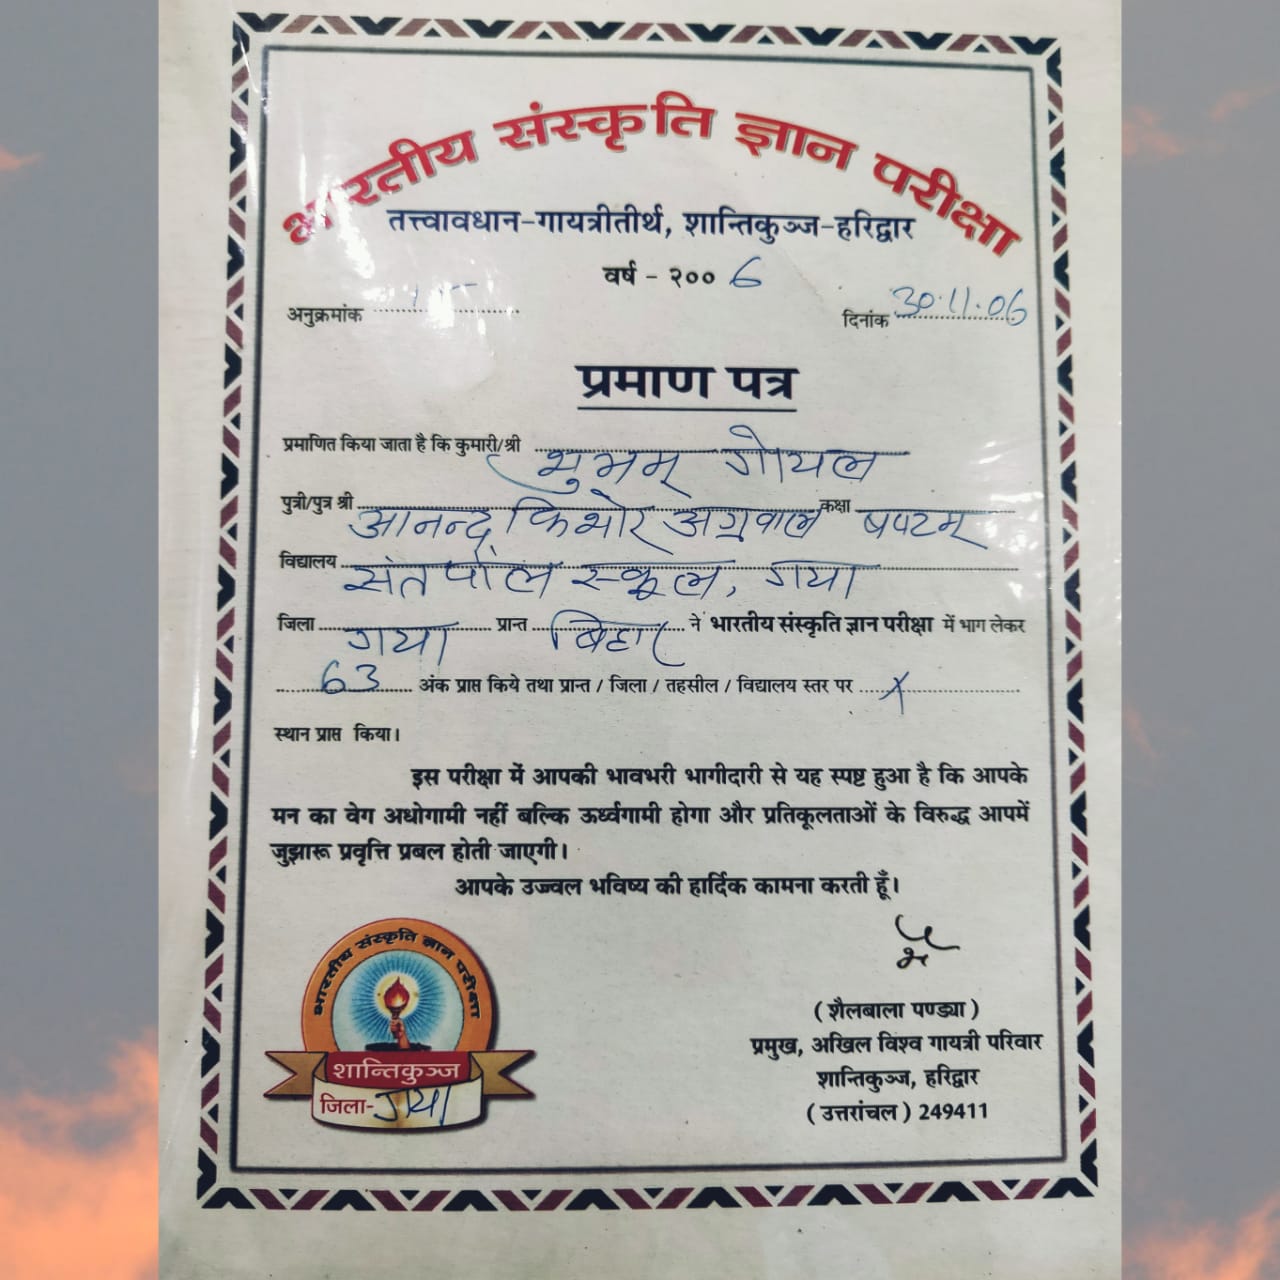 भारतीय संस्कृति ज्ञान परीक्षा
तत्त्वावधान-गायत्रीतीर्थ, शान्तिकुञ्ज-हरिद्वार
वर्ष - २००6
अनुक्रमांक
दिनांक 30.11.06
प्रमाण पत्र
प्रमाणित किया जाता है कि कुमारी/श्री शुभम् गोयल
पुत्री/पुत्र श्री आनन्द किशोर अग्रवाल कक्षा षष्टम्
विद्यालय संत पॉल स्कूल, गया
जिला गया प्रान्त बिहार ने भारतीय संस्कृति ज्ञान परीक्षा में भाग लेकर
63 अंक प्राप्त किये तथा प्रान्त / जिला / तहसील / विद्यालय स्तर पर X
स्थान प्राप्त किया।
इस परीक्षा में आपकी भावभरी भागीदारी से यह स्पष्ट हुआ है कि आपके
मन का वेग अधोगामी नहीं बल्कि ऊर्ध्वगामी होगा और प्रतिकूलताओं के विरुद्ध आपमें
जुझारू प्रवृत्ति प्रबल होती जाएगी।
आपके उज्ज्वल भविष्य की हार्दिक कामना करती हूँ।
(शैलबाला पण्ड्या)
प्रमुख, अखिल विश्व गायत्री परिवार
शान्तिकुञ्ज, हरिद्वार
(उत्तरांचल) 249411
भारतीय संस्कृति ज्ञान परीक्षा
शान्तिकुञ्ज
जिला-गया